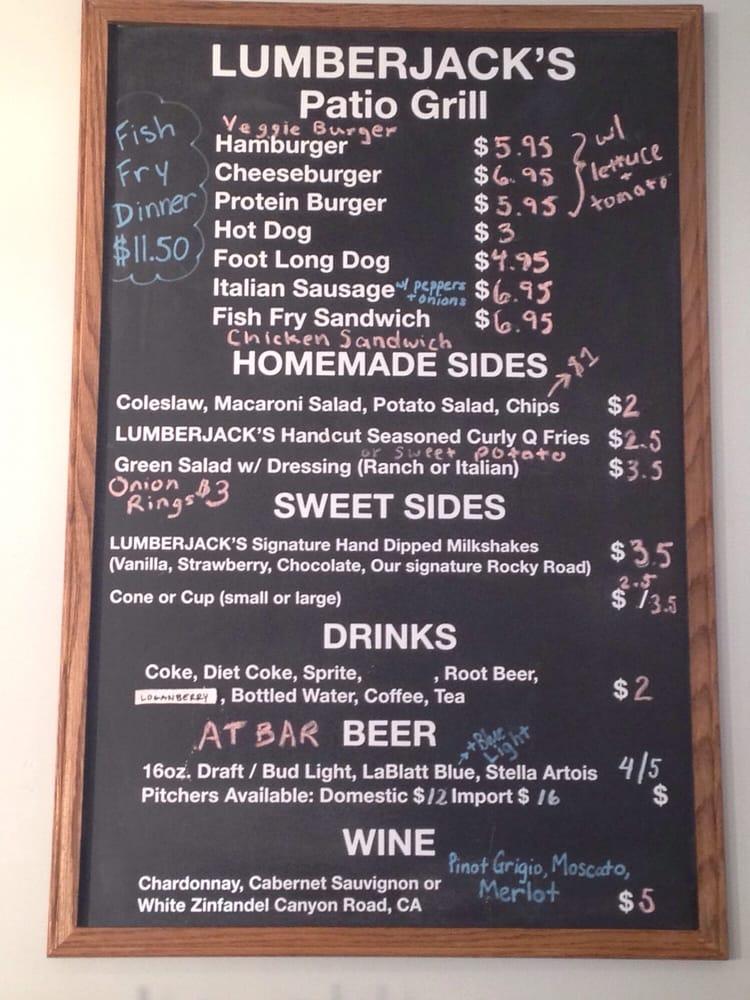 LUMBERJACK'S
Patio Grill
Fish
Fry
Dinner
$11.50
Veggie Burger
Hamburger $5.95
Cheeseburger $6.95
Protein Burger $5.95
w/
lettuce
+
tomato
Hot Dog $3
Foot Long Dog $4.95
Italian Sausage w/ peppers + onions $6.95
Fish Fry Sandwich $6.95
Chicken Sandwich
HOMEMADE SIDES
$1
Coleslaw, Macaroni Salad, Potato Salad, Chips $2
LUMBERJACK'S Handcut Seasoned Curly Q Fries $2.5
or sweet potato
Green Salad w/ Dressing (Ranch or Italian) $3.5
Onion
Rings $3
SWEET SIDES
LUMBERJACK'S Signature Hand Dipped Milkshakes $3.5
(Vanilla, Strawberry, Chocolate, Our signature Rocky Road)
Cone or Cup (small or large) $2.5/3.5
DRINKS
Coke, Diet Coke, Sprite, , Root Beer,
LOGANBERRY, Bottled Water, Coffee, Tea $2
AT BAR BEER
+Blue
Light
16oz. Draft / Bud Light, LaBlatt Blue, Stella Artois 4/5
Pitchers Available: Domestic $12 Import $16 $
WINE
Pinot Grigio, Moscato,
Merlot
Chardonnay, Cabernet Sauvignon or
White Zinfandel Canyon Road, CA $5